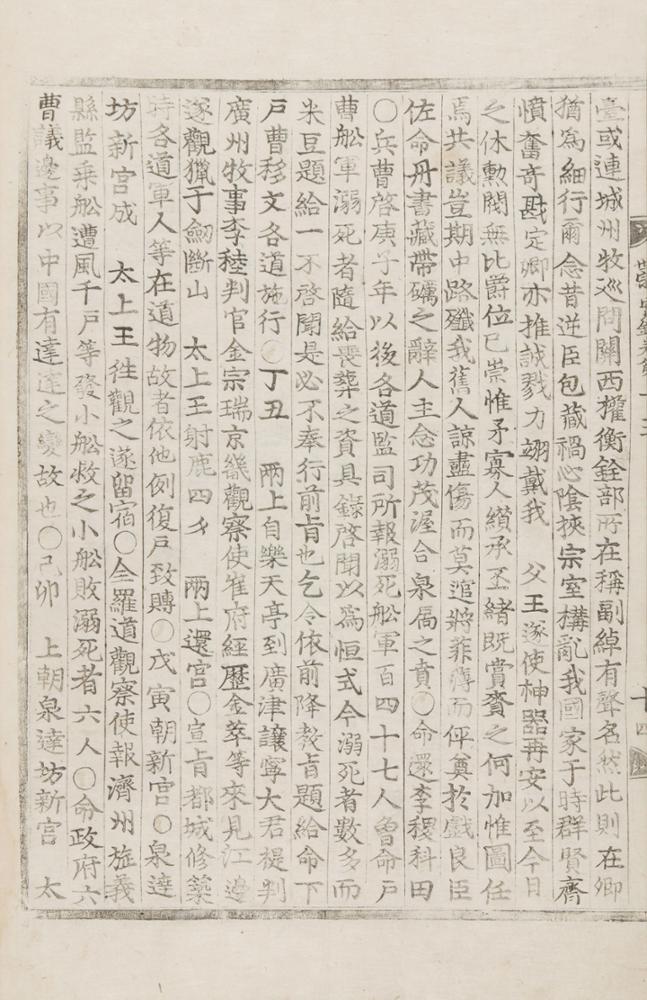 臺或連城州牧巡問關西權衡銓部所在稱副綽有聲名然此則在卿
猶爲細行爾念昔逆臣包藏禍心陰挾宗室構亂我國家于時群賢齊
憤奮奇戡定卿亦推誠戮力翊戴我 父王遂使神器再安以至今日
之休勲閥無比爵位已崇惟予寡人纉承丕緖旣賞賚之何加惟圖任
焉共議豈期中路殲我舊人諒盡傷而莫追將菲薄而伻奠於戲良臣
佐命丹書藏帶礪之辭人主念功茂渥合泉扃之賁○命還李稷科田
○兵曹啓庚子年以後各道監司所報溺死舩軍百四十七人曾命戶
曹舩軍溺死者隨給喪葬之資具錄啓聞以爲恒式今溺死者數多而
米豆題給一不啓聞是必不奉行前旨也乞令依前降敎旨題給命下
戶曹移文各道施行○丁丑 兩上自樂天亭到廣津讓寧大君禔判
廣州牧事李𨓏判官金宗瑞京畿觀察使崔府經歷金萃等來見江邊
遂觀獵于劒斷山 太上王射鹿四 兩上還宮○宣旨都城修築
時各道軍人等在道物故者依他例復戶致賻○戊寅朝新宮○泉達
坊新宮成 太上王徃觀之遂留宿○全羅道觀察使報濟州旌義
縣監乘舩遭風千戶等發小舩救之小舩敗溺死者六人○命政府六
曹議邊事以中國有達達之變故也○己卯 上朝泉達坊新宮 太
十四